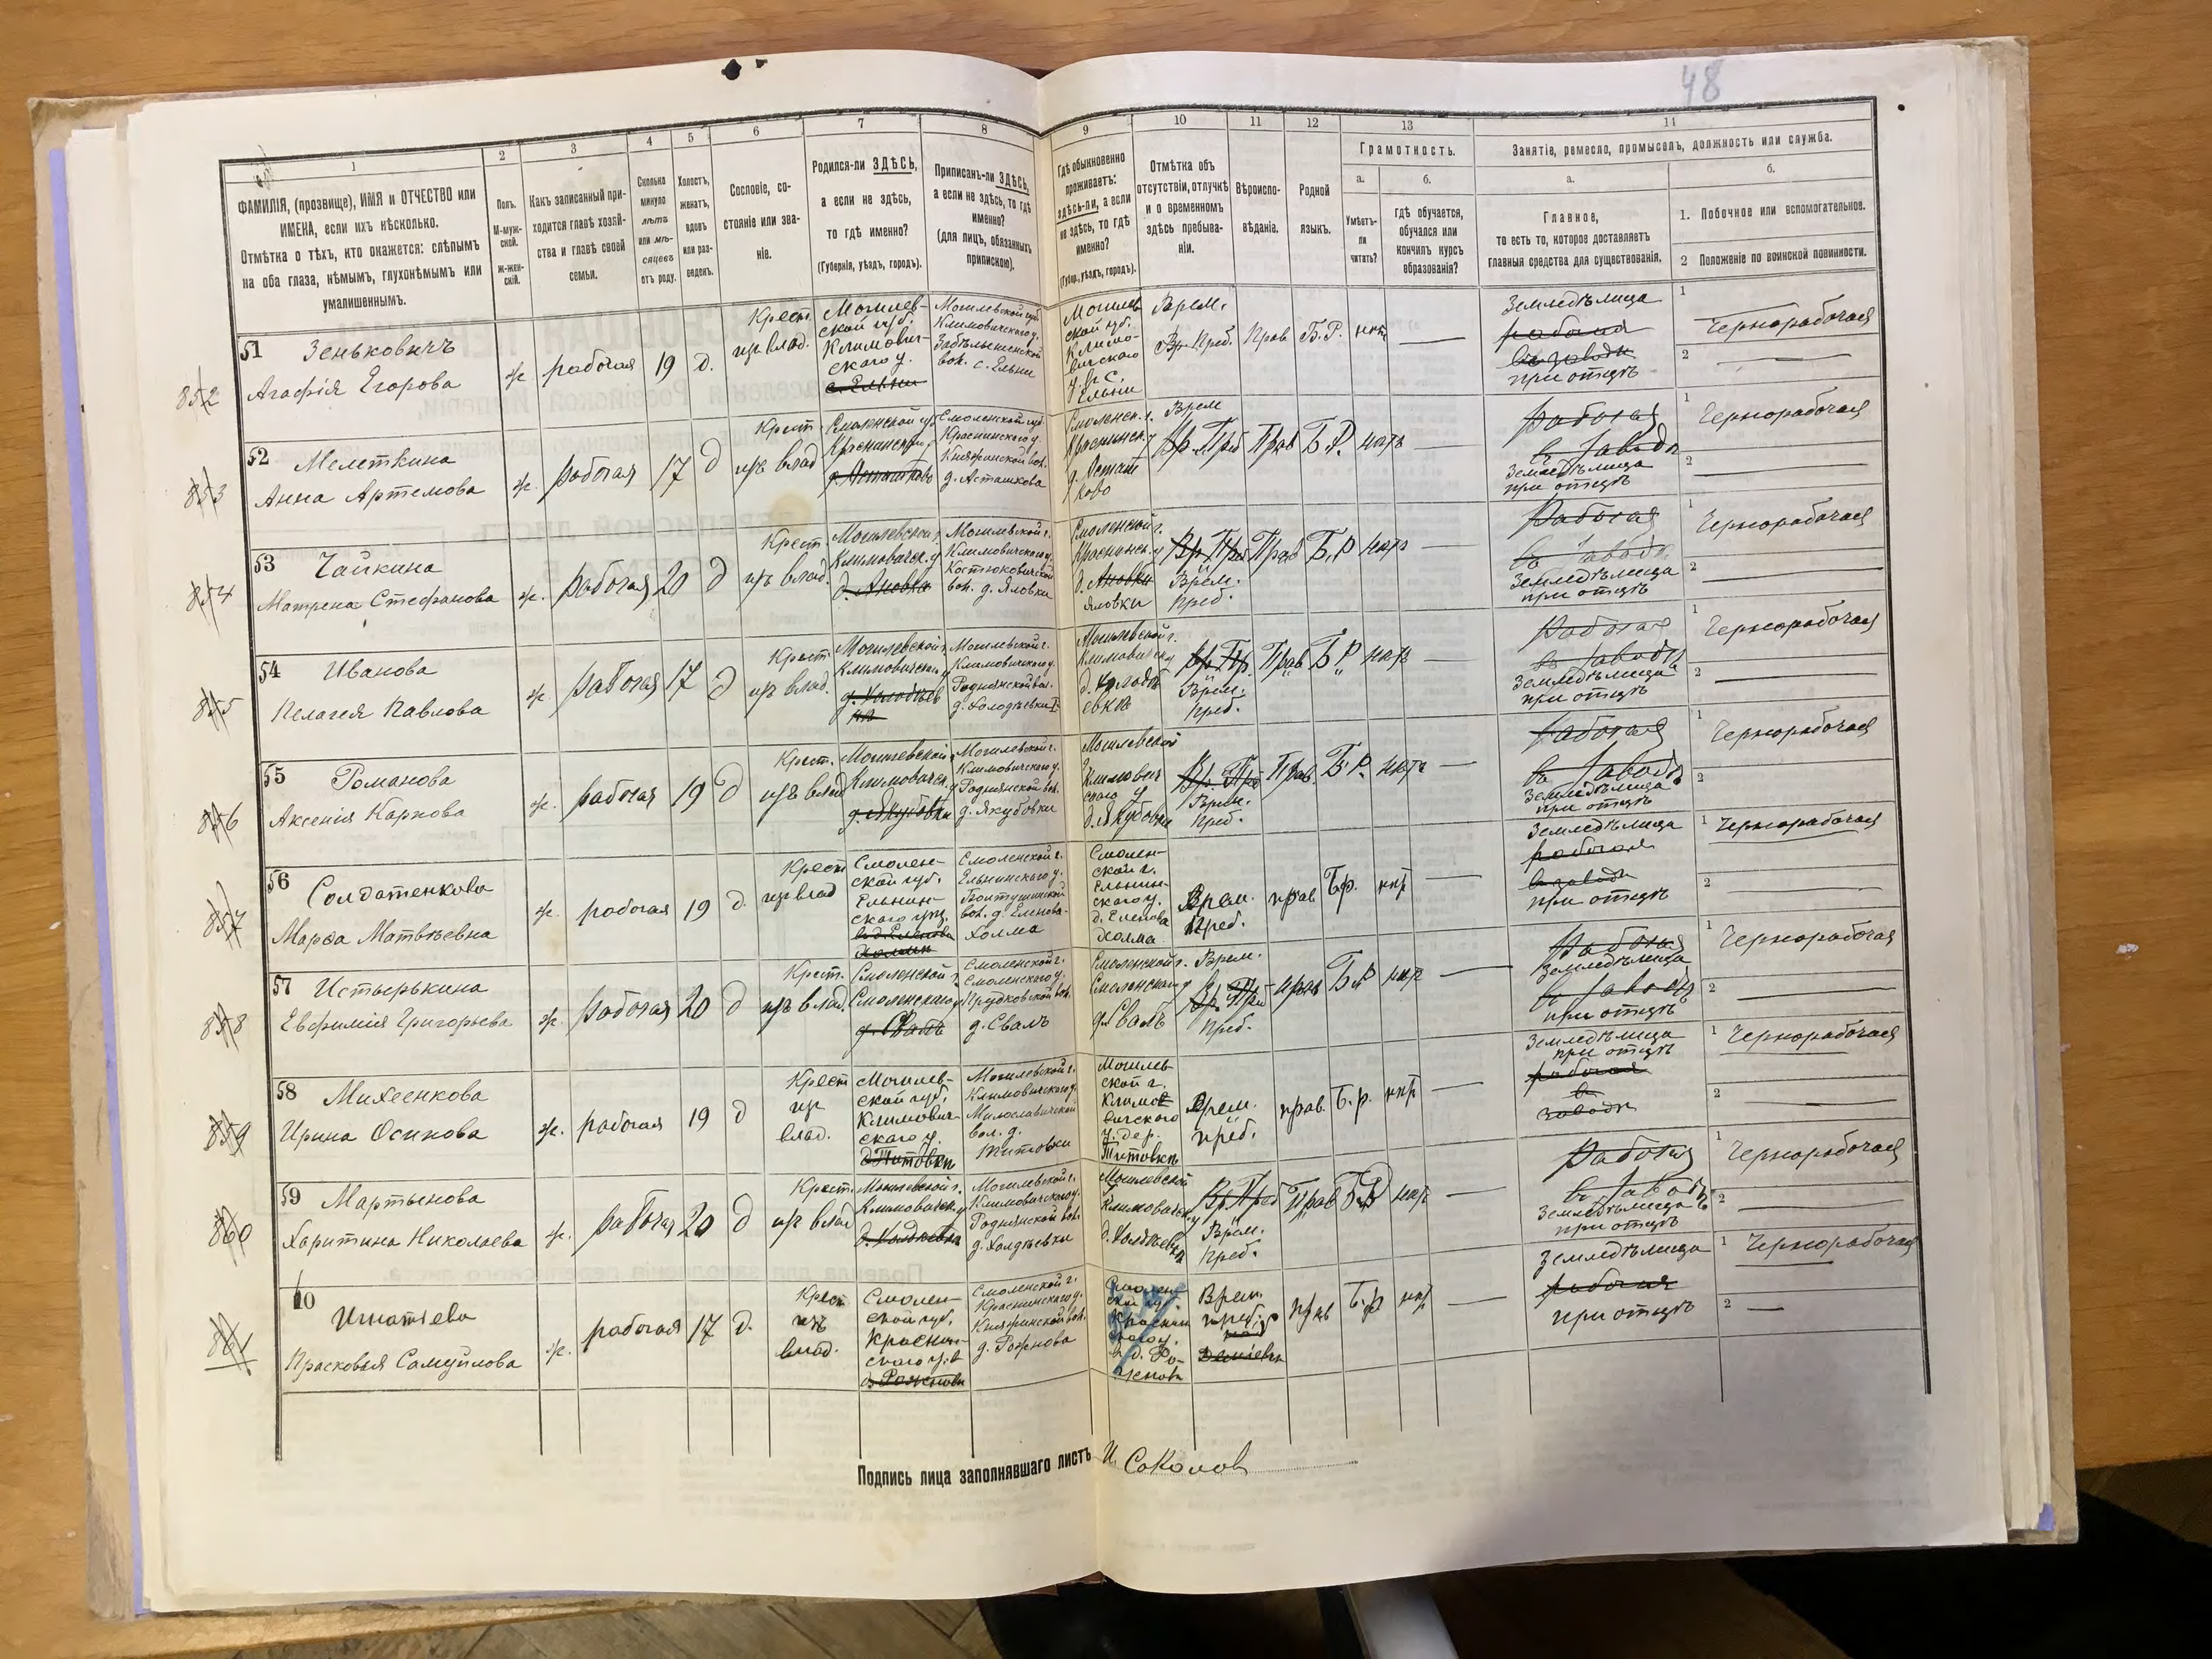 48
1
2
3
4
5
6
7
8
9
10
11
12
13
14
ФАМИЛІЯ, (прозвище), ИМЯ и ОТЧЕСТВО или
ИМЕНА, если ихъ нѣсколько.
Отмѣтка о тѣхъ, кто окажется: слѣпымъ
на оба глаза, нѣмымъ, глухонѣмымъ или
умалишеннымъ.
Полъ.
М-муж-
ской.
Ж-жен-
скій.
Какъ записанный при-
ходится главѣ хозяй-
ства и главѣ своей
семьи.
Сколько
минуло
лѣтъ
или мѣ-
сяцевъ
отъ роду.
Холостъ,
женатъ,
вдовъ
или раз-
веденъ.
Сословіе, со-
стояніе или зва-
ніе.
Родился-ли ЗДѢСЬ,
а если не здѣсь,
то гдѣ именно?
(Губернія, уѣздъ, городъ).
Приписанъ-ли ЗДѢСЬ,
а если не здѣсь, то гдѣ
именно?
(для лицъ, обязанныхъ
припискою).
Гдѣ обыкновенно
проживаетъ:
здѣсь-ли, а если
не здѣсь, то гдѣ
именно?
(Губер., уѣздъ, городъ).
Отмѣтка объ
отсутствіи, отлучкѣ
и о временномъ
здѣсь пребыва-
ніи.
Вѣроиспо-
вѣданіе.
Родной
языкъ.
Грамотность.
а.
б.
Умѣетъ-
ли
читать?
гдѣ обучается,
обучался или
кончилъ курсъ
образованія?
Занятіе, ремесло, промыселъ, должность или служба.
а.
б.
Главное,
то есть то, которое доставляетъ
главныя средства для существованія.
1. Побочное или вспомогательное.
2 Положеніе по воинской повинности.
852
51
Зеньковичъ
Агафія Егорова
ж
рабочая
19
д.
Крест.
изъ влад.
Могилев-
ской губ.
Климович-
скаго у.
с. Ельни
Могилевской губ.
Климовичскаго у.
вол. с. Ельни
Могилев
ской губ.
Климо-
вичскаго
у. въ с.
Ельни
Врем.
Вр. Преб.
Прав
Б.Р.
нѣтъ
Земледѣлица
рабочая
въ заводѣ
при отцѣ
1
Чернорабочая
2
853
52
Мелеткина
Анна Артемова
ж.
рабочая
17
д
Крест.
изъ влад
Смоленской губ
Краснинскаго у
д. Асташково
Смоленской губ.
Краснинскаго у.
Княжинской вол.
д. Асташкова
Смоленск. г.
Краснинск. у
д. Асташ
ково
Врем
Вр. Преб
Прав
Б.Р.
нѣтъ
Рабочая
въ заводѣ
Земледѣлица
при отцѣ
1
Чернорабочая
2
854
53
Чайкина
Матрена Стефанова
ж.
рабочая
20
д
Крест.
изъ влад.
Могилевской г.
Климовичск. у
Могилевской г.
Климовичскаго у.
Костюковичской
вол. д. Яловки
Смоленской г.
Краснинск. у
Яловки
Вр Преб
Врем.
преб.
Прав
Б.Р
нѣтъ
Рабочая
въ заводѣ
Земледѣлица
при отцѣ
1
Чернорабочая
2
855
54
Иванова
Пелагея Павлова
ж.
рабочая
17
д
Крест.
изъ влад.
Могилевской г.
Климовичск. у
Могилевской г.
Климовичскаго у.
Роднянской вол.
д. Холодѣевки
Могилевской г.
Климовичск у
Вр. Пр.
Врем.
преб.
Прав
Б.Р
нѣтъ
Рабочая
въ заводѣ
Земледѣлица
при отцѣ
1
Чернорабочая
2
856
55
Романова
Аксенія Карпова
ж.
рабочая
19
д
Крест.
изъ влад
Могилевской г.
Климовичск. у
д. Якубовки
Могилевской г.
Климовичскаго у.
Роднянской вол.
д. Якубовки
Могилевской
г
Климович
скаго у
д. Якубовка
Вр. Преб
Врем.
преб.
Прав.
Б.Р.
нѣтъ
Рабочая
въ заводѣ
Земледѣлица
при отцѣ
1
Чернорабочая
2
857
56
Солдатенкова
Марѳа Матвѣевна
ж.
рабочая
19
д.
Крест
изъ влад
Смолен-
ской губ.
Ельнин-
скаго у.
Смоленской г.
Ельнинскаго у.
вол. д. Еленова-
Холма
Смолен-
ской г.
Ельнин-
скаго у.
д. Еленова
Холма
Врем.
преб.
прав
Б.р.
нѣтъ
Земледѣлица
рабочая
въ заводѣ
при отцѣ
1
Чернорабочая
2
858
57
Истерькина
Евфимія Григорьева
ж.
рабочая
20
д
Крест.
изъ влад.
Смоленской г.
Смоленскаго у
Смоленской г.
Смоленскаго у.
Прудковской вол.
д. Свалъ
Смоленской г.
Смоленскаго у
д. Свалъ
Врем.
Вр. Преб
преб.
прав
Б.Р
нѣтъ
Рабочая
Земледѣлица
въ заводѣ
при отцѣ
1
Чернорабочая
2
859
58
Михеенкова
Ирина Осипова
ж.
рабочая
19
д
Крест
из
влад.
Могилев-
ской губ.
Климович-
скаго у.
д. Титовки
Могилевской г.
Климовичскаго у.
Милославичской
вол. д.
Титовки
Могилев-
ской г.
Климо-
вичскаго
у. дер.
Титовки
Врем.
преб.
прав.
Б.р.
нѣтъ
Земледѣлица
при отцѣ
рабочая
въ
заводѣ
1
Чернорабочая
2
860
59
Мартынова
Харитина Николаева
ж.
рабочая
20
д
Крест.
изъ влад
Могилевской г.
Климовичск. у
Могилевской г.
Климовичскаго у.
Роднянской вол.
д. Холдѣевки
Могилевской
г
Климовичск
у
Вр. Преб
Врем.
преб.
Прав
Б.Р
нѣтъ
Рабочая
въ заводѣ
Земледѣлица
при отцѣ
1
Чернорабочая
2
861
60
Игнатьева
Прасковья Самуйлова
ж.
рабочая
17
д.
Крест
изъ
влад.
Смолен-
ской губ.
Краснин-
скаго у. в
Смоленской г.
Краснинскаго у.
Княжинской вол.
д. Рожнова
Смолен-
ской г.
Краснин
скаго у.
Врем.
преб.
прав
Б.р
нѣтъ
Земледѣлица
рабочая
при отцѣ
1
Чернорабочая
2
Подпись лица заполнявшаго листъ И. Соколов